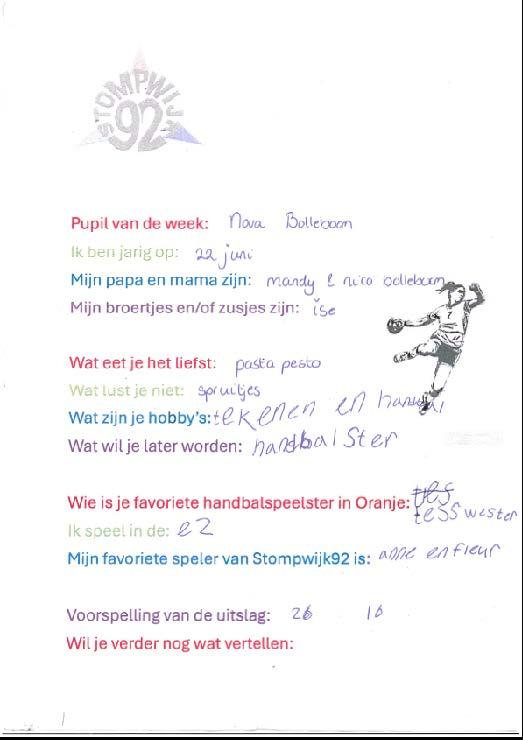 STOMPWIJK
92
Pupil van de week: Nova Bolleboom
Ik ben jarig op: 22 juni
Mijn papa en mama zijn: mandy & nico bolleboom
Mijn broertjes en/of zusjes zijn: ise
Wat eet je het liefst: pasta pesto
Wat lust je niet: spruitjes
Wat zijn je hobby's: tekenen en
Wat wil je later worden: handbalster
Wie is je favoriete handbalspeelster in Oranje: tes
tess wester
Ik speel in de: e2
Mijn favoriete speler van Stompwijk92 is: anne en fleur
Voorspelling van de uitslag: 26 16
Wil je verder nog wat vertellen: